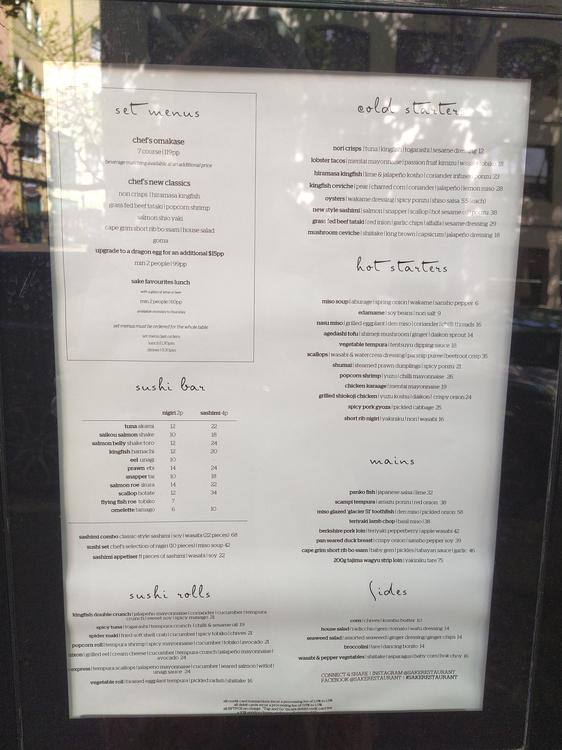 set menus
chef's omakase
7 course | 119pp
beverage matching available at an additional price
chef's new classics
nori crisps | hiramasa kingfish
grass fed beef tataki | popcorn shrimp
salmon shio yaki
cape grim short rib bo ssam | house salad
goma
upgrade to a dragon egg for an additional $15pp
min 2 people | 99pp
sake favourites lunch
min 2 people | 60pp
available monday to thursday
set menus must be ordered for the whole table
set menu last orders
sushi bar
nigiri 2p sashimi 4p
tuna akami 12 22
saikou salmon shake 10 18
salmon belly shake toro 12 24
kingfish hamachi 12 20
eel unagi 10
prawn ebi 14 24
snapper tai 10 18
salmon roe ikura 14 22
scallop hotate 12 34
flying fish roe tobiko 7
omelette tamago 6 10
sashimi combo classic style sashimi | soy | wasabi (22 pieces) 68
sushi set chef's selection of nigiri (10 pieces) | miso soup 42
sashimi appetiser 8 pieces of sashimi | wasabi | soy 22
sushi rolls
kingfish double crunch | jalapeño mayonnaise | coriander | cucumber | tempura
crunch | sweet soy | spicy masago 21
spicy tuna | togarashi | tempura crunch | chilli & sesame oil 19
spider maki | fried soft shell crab | cucumber | spicy tobiko | chives 21
popcorn roll | tempura shrimp | spicy mayonnaise | cucumber | tobiko | avocado 21
grilled eel | cream cheese | cucumber | tempura crunch | jalapeño mayonnaise |
avocado 24
express | tempura scallops | jalapeño mayonnaise | cucumber | seared salmon | witlof |
unagi sauce 24
vegetable roll | braised eggplant tempura | pickled radish | shiitake 16
cold starters
nori crisps | tuna | kingfish | togarashi | sesame dressing 12
lobster tacos | mentai mayonnaise | passion fruit kimizu | tobiko
hiramasa kingfish | lime & jalapeño kosho | coriander infused ponzu 23
kingfish ceviche | pear | charred corn | coriander | jalapeño | lemon miso 28
oysters | wakame dressing | spicy ponzu | shiso salsa 5.5 (each)
new style sashimi | salmon | snapper | scallop | hot sesame oil | ponzu 38
grass fed beef tataki | red onion | garlic chips | alfalfa | sesame dressing 29
mushroom ceviche | shiitake | king brown | capsicum | jalapeño dressing 18
hot starters
miso soup | aburage | spring onion | wakame | sansho pepper 6
edamame | soy beans | nori salt 9
nasu miso | grilled eggplant | den miso | coriander | chilli threads 16
agedashi tofu | shimeji mushroom | ginger | daikon | dashi 14
vegetable tempura | tentsuyu dipping sauce 18
scallops | wasabi & watercress dressing | parsnip puree | beetroot crisp 35
shumai | steamed prawn dumplings | spicy ponzu 21
popcorn shrimp | yuzu | chilli mayonnaise 26
chicken karaage | mentai mayonnaise 19
grilled shiokoji chicken | yuzu kosho | daikon | crispy onion 24
spicy pork gyoza | pickled cabbage 25
short rib nigiri | yakiniku | nori | wasabi 16
mains
panko fish | japanese salsa | lime 32
scampi tempura | amazu ponzu | red onion 38
miso glazed 'glacier 51' toothfish | den miso | pickled onion 58
teriyaki lamb chop | basil miso | 38
berkshire pork loin | teriyaki pepperberry | apple wasabi 42
pan seared duck breast | crispy onion | sansho pepper soy 39
cape grim short rib bo ssam | baby gem | pickles | tabayan sauce | garlic 46
200g tajima wagyu strip loin | yakiniku tare 75
sides
corn | chives | kombu butter 10
house salad | radicchio | gem | tomato | wafu dressing 14
seaweed salad | assorted seaweed | ginger dressing | ginger chips 14
broccolini | tare | dancing bonito 14
wasabi & pepper vegetables | shiitake | asparagus | baby corn | bok choy 16
CONNECT & SHARE | INSTAGRAM @SAKERESTAURANT
FACEBOOK @SAKERESTAURANT | #SAKERESTAURANT